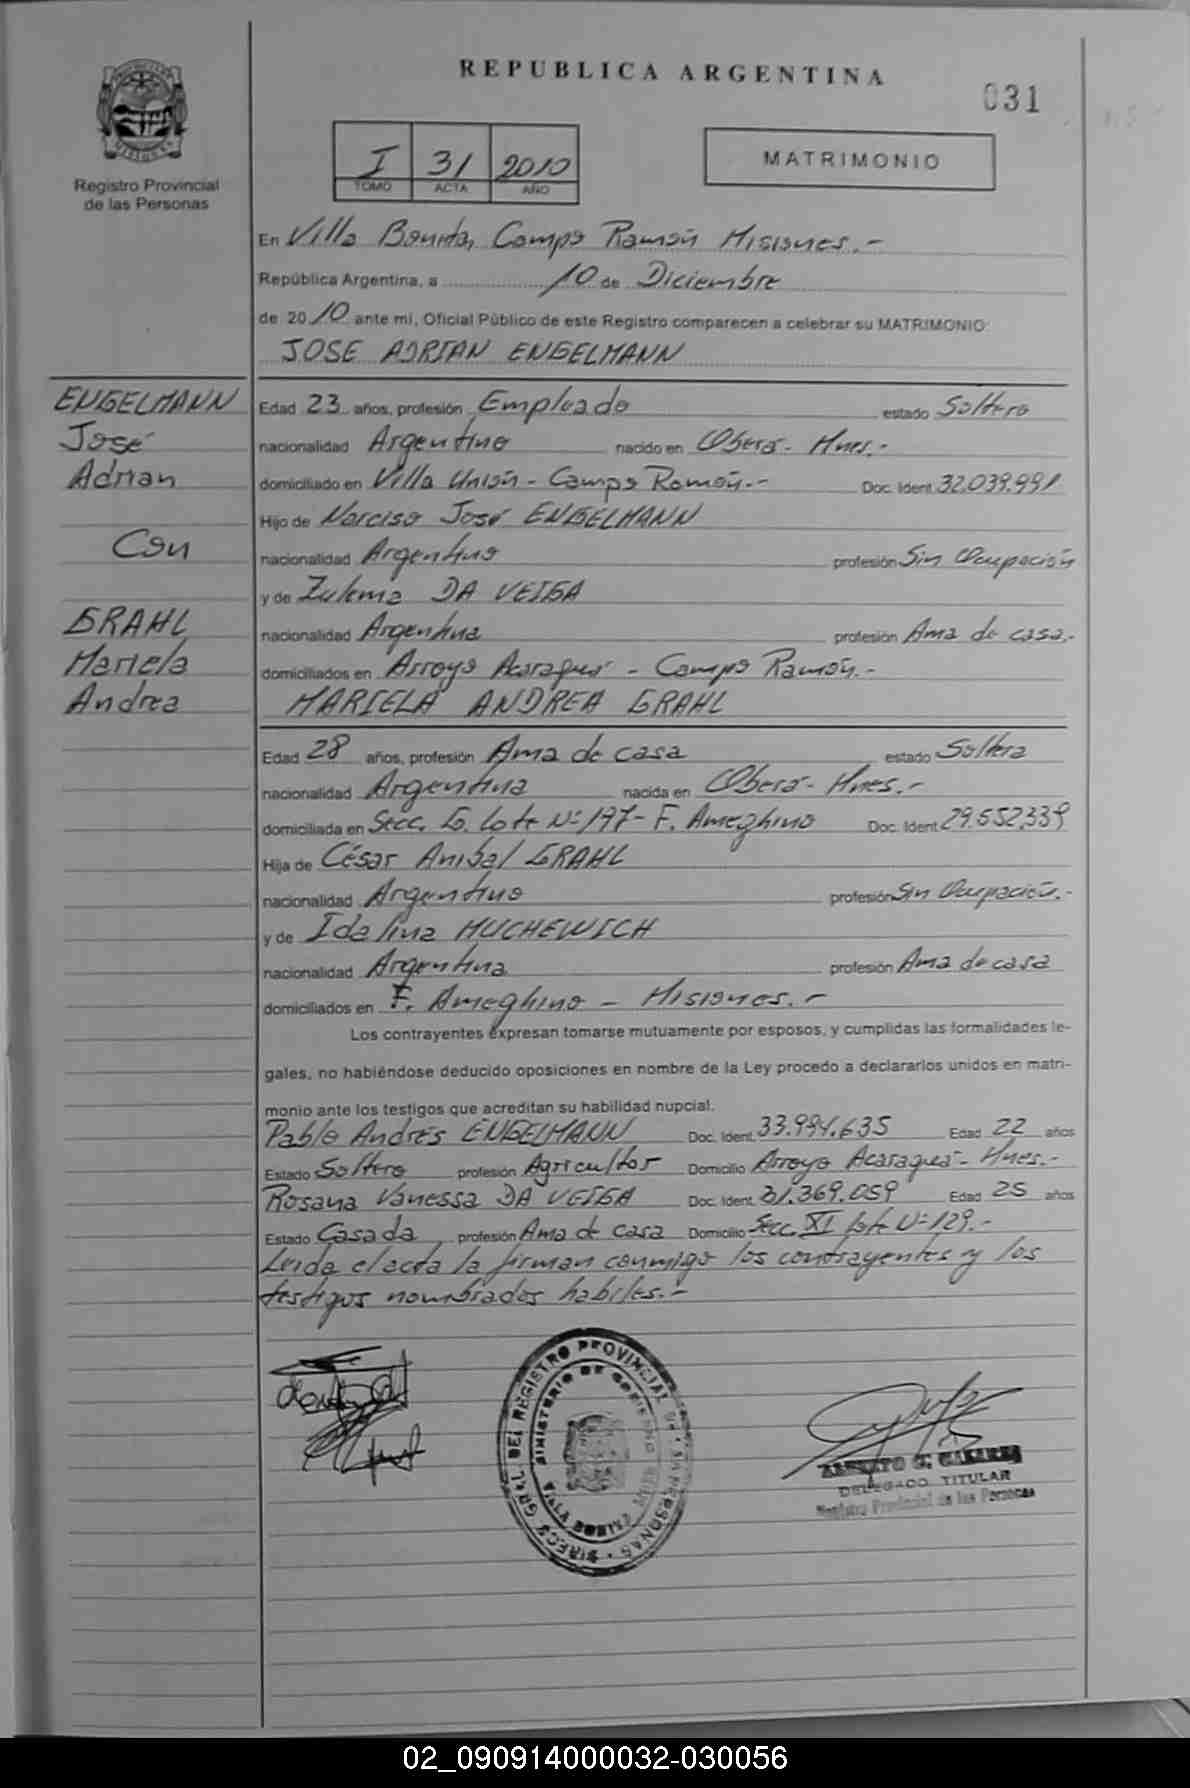 REPUBLICA ARGENTINA
031
PROVINCIA DE MISIONES
Registro Provincial
de las Personas
I 31 2010
TOMO ACTA AÑO
MATRIMONIO
En Villa Bonita, Campo Ramón Misiones.-
República Argentina, a 10 de Diciembre
de 2010 ante mi, Oficial Público de este Registro comparecen a celebrar su MATRIMONIO:
JOSE ADRIAN ENGELMANN
ENGELMANN
José
Adrian
Con
GRAHL
Mariela
Andrea
Edad 23 años, profesión Empleado estado Soltero
nacionalidad Argentino nacido en Oberá - Mnes.-
domiciliado en Villa Unión - Campo Ramón.- Doc. Ident. 32.039.991
Hijo de Narciso José ENGELMANN
nacionalidad Argentino profesión Sin Ocupación
y de Zulema DA VEIGA
nacionalidad Argentina profesión Ama de casa.-
domiciliados en Arroyo Acaragua - Campo Ramón.-
MARIELA ANDREA GRAHL
Edad 28 años, profesión Ama de casa estado Soltera
nacionalidad Argentina nacida en Oberá - Mnes.-
domiciliada en Secc. Lote Nº 197 - F. Ameghino Doc. Ident. 29.552.339
Hija de César Anibal GRAHL
nacionalidad Argentino profesión Sin Ocupación.-
y de Idalina MUCHEWICH
nacionalidad Argentina profesión Ama de casa
domiciliados en F. Ameghino - Misiones.-
Los contrayentes expresan tomarse mutuamente por esposos, y cumplidas las formalidades le-
gales, no habiéndose deducido oposiciones en nombre de la Ley procedo a declararlos unidos en matri-
monio ante los testigos que acreditan su habilidad nupcial.
Pablo Andrés ENGELMANN Doc. Ident. 33.994.635 Edad 22 años
Estado Soltero profesión Agricultor Domicilio Arroyo Acaragua - Mnes.-
Rosana Vanessa DA VEIGA Doc. Ident. 31.369.059 Edad 25 años
Estado Casada profesión Ama de casa Domicilio Secc. XI lote Nº 129.-
Leida el acta la firman conmigo los contrayentes y los
testigos nombrados habiles.-
DIRECC. GRAL. DEL REGISTRO PROVINCIAL DE LAS PERSONAS
MINISTERIO DE GOBIERNO
VILLA BONITA
DELEGADO TITULAR
Registro Provincial de las Personas
02_090914000032-030056